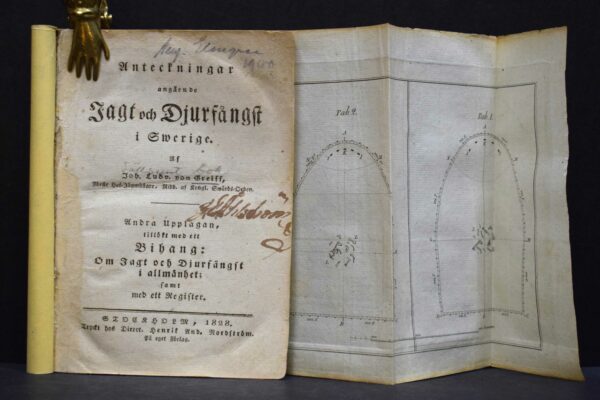 Anteckningar
angående
Jagt och Djurfångst
i Swerige.
Af
Joh. Ludv. von Greiff,
Öfverste Hof-Jägmästare, Ridd. af Kongl. Swärds-Orden.
Andra Upplagan,
tillökt med ett
Bihang:
Om Jagt och Djurfångst
i allmänhet;
samt
med ett Register.
STOCKHOLM, 1828.
Tryckt hos Direct. Henrik And. Nordström.
På eget förlag.
Tab. 2.
Tab. 1.
A
A
B
B